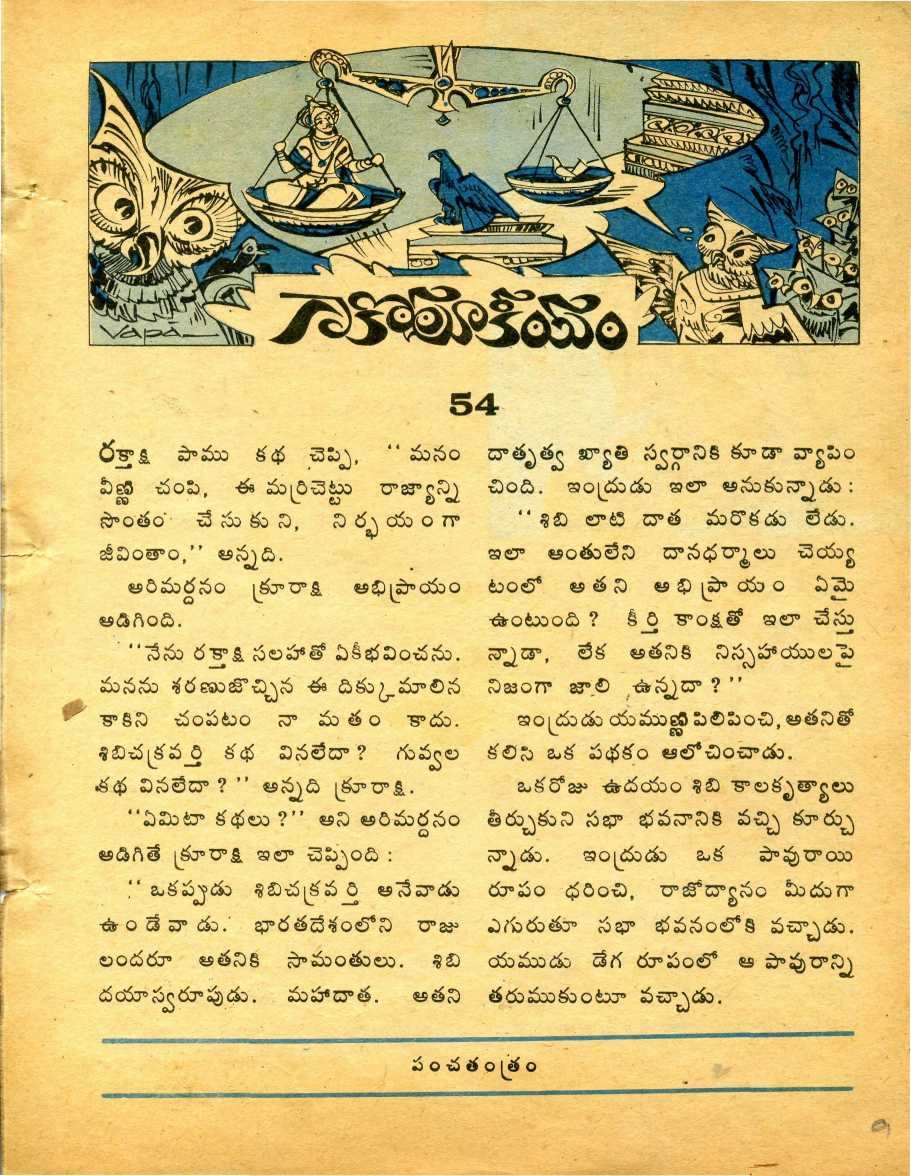 VAPA
కాకోలూకీయం
54
రక్తాక్షి పాము కథ చెప్పి, "మనం
వీణ్ణి చంపి, ఈ మర్రిచెట్టు రాజ్యాన్ని
సొంతం చేసుకుని, నిర్భయంగా
జీవింతాం," అన్నది.
అరిమర్దనం క్రూరాక్షి అభిప్రాయం
అడిగింది.
"నేను రక్తాక్షి సలహాతో ఏకీభవించను.
మనను శరణుజొచ్చిన ఈ దిక్కుమాలిన
కాకిని చంపటం నా మతం కాదు.
శిబిచక్రవర్తి కథ వినలేదా? గువ్వల
కథ వినలేదా?" అన్నది క్రూరాక్షి.
"ఏమిటా కథలు?" అని అరిమర్దనం
అడిగితే క్రూరాక్షి ఇలా చెప్పింది:
"ఒకప్పుడు శిబిచక్రవర్తి అనేవాడు
ఉండేవాడు. భారతదేశంలోని రాజు
లందరూ అతనికి సామంతులు. శిబి
దయాస్వరూపుడు. మహాదాత. అతని
దాతృత్వ ఖ్యాతి స్వర్గానికి కూడా వ్యాపిం
చింది. ఇంద్రుడు ఇలా అనుకున్నాడు:
"శిబి లాటి దాత మరొకడు లేడు.
ఇలా అంతులేని దానధర్మాలు చెయ్య
టంలో అతని అభిప్రాయం ఏమై
ఉంటుంది? కీర్తి కాంక్షతో ఇలా చేస్తు
న్నాడా, లేక అతనికి నిస్సహాయులపై
నిజంగా జాలి ఉన్నదా?"
ఇంద్రుడు యముణ్ణి పిలిపించి, అతనితో
కలిసి ఒక పథకం ఆలోచించాడు.
ఒకరోజు ఉదయం శిబి కాలకృత్యాలు
తీర్చుకుని సభా భవనానికి వచ్చి కూర్చు
న్నాడు. ఇంద్రుడు ఒక పావురాయి
రూపం ధరించి, రాజోద్యానం మీదుగా
ఎగురుతూ సభా భవనంలోకి వచ్చాడు.
యముడు డేగ రూపంలో ఆ పావురాన్ని
తరుముకుంటూ వచ్చాడు.
పంచతంత్రం